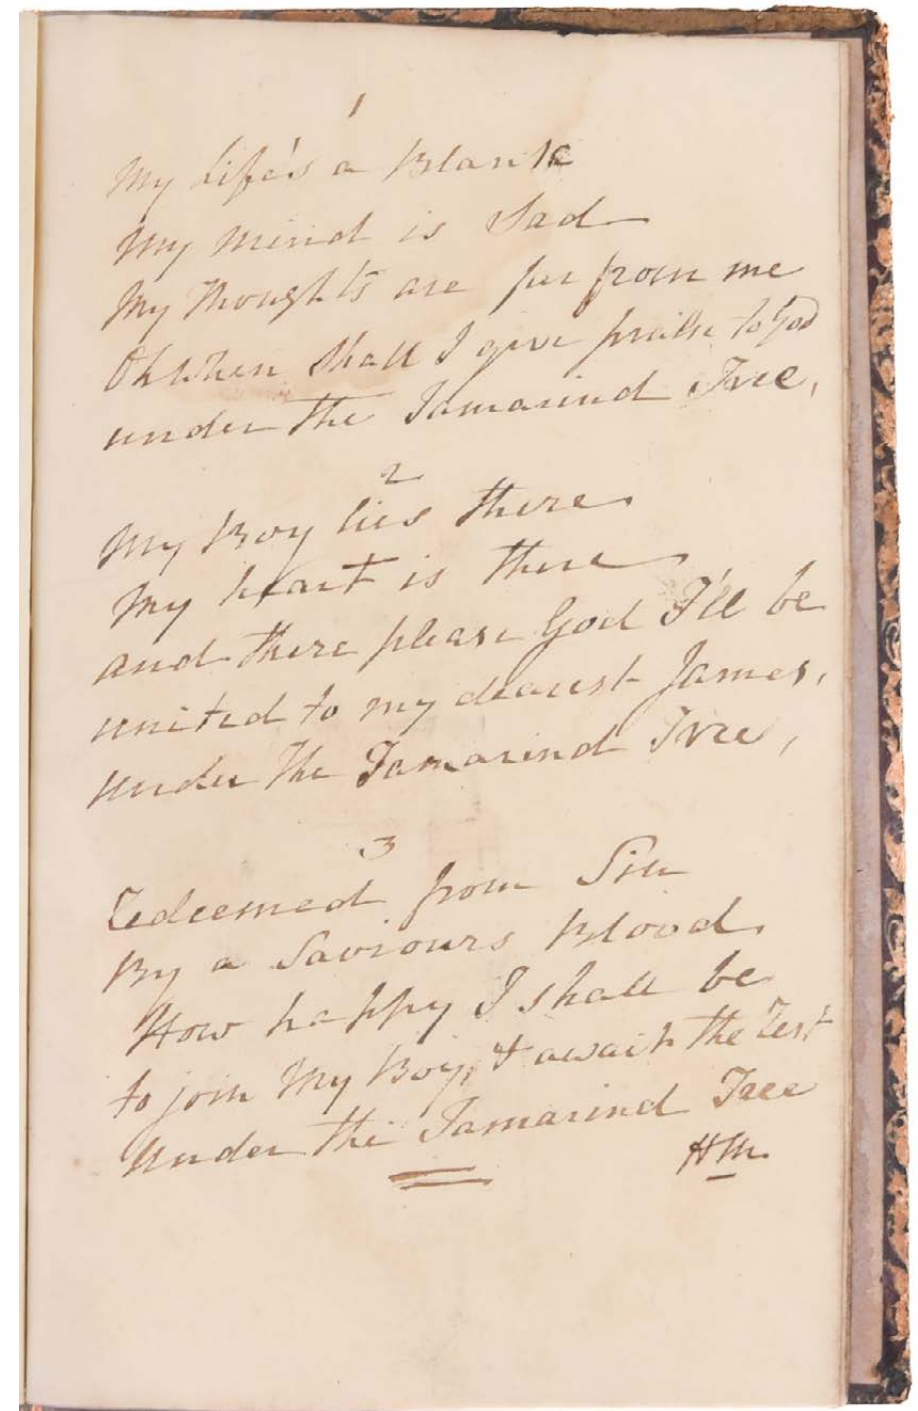 1
My Life's a Blank
My mind is Sad
My Thoughts are far from me
Oh When Shall I give praise to God
under The Tamarind Tree,
2
My Boy lies there
My heart is there
and there please God I'll be
united to my dearest James,
under The Tamarind Tree,
3
Redeemed from Sin
By a Saviours Blood
How happy I shall be
to join My Boy, & await The Rest
Under The Tamarind Tree
HM.